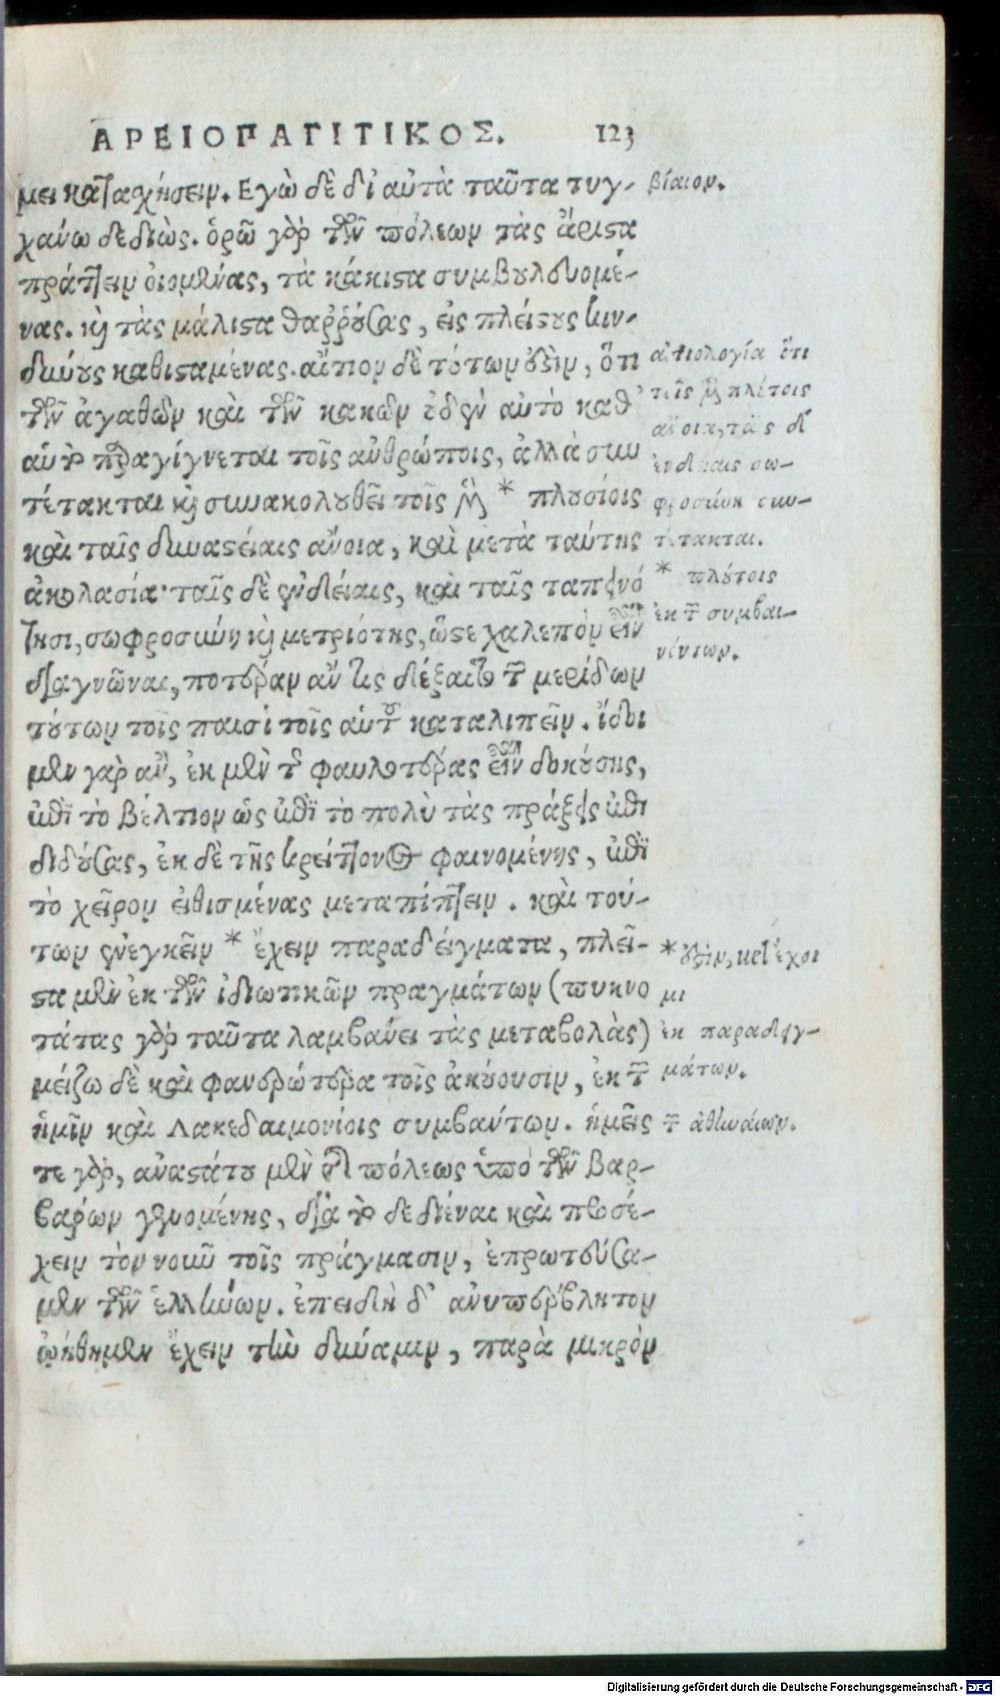 ΑΡΕΙΟΠΑΓΙΤΙΚΟΣ. 123
μει κατασχήσειν. Εγὼ δὲ δι' αὐτὰ ταῦτα τυγ-
χάνω δεδιὼς. ὁρῶ γὰρ τῶν πόλεων τὰς ἄριστα
πράττειν οἰομένας, τὰ κάκιστα συμβουλευομέ-
νας. καὶ τὰς μάλιστα θαῤῥούσας, εἰς πλείστους κιν-
δύνους καθισταμένας. αἴτιον δὲ τούτων οὐδὲν, ὅτι
τῶν ἀγαθῶν καὶ τῶν κακῶν οὐδὲν αὐτὸ καθ'
αὑτὸ παραγίγνεται τοῖς ἀνθρώποις, ἀλλὰ συν
τέτακται καὶ συνακολουθεῖ τοῖς μὲν * πλουσίοις
καὶ ταῖς δυναστείαις ἄνοια, καὶ μετὰ ταύτης
ἀκολασία· ταῖς δὲ ἐνδείαις, καὶ ταῖς ταπεινό
τησι, σωφροσύνη καὶ μετριότης, ὥστε χαλεπὸν εἶναι
διαγνῶναι, ποτέραν ἄν τις δέξαιτο τῶν μερίδων
τούτων τοῖς παισὶ τοῖς αὑτοῦ καταλιπεῖν. ἴδοι
μεν γὰρ ἂν, ἐκ μὲν τῆς φαυλοτέρας εἶναι δοκούσης,
ἐπὶ τὸ βέλτιον ὡς ἐπὶ τὸ πολὺ τὰς πράξεις ἐπι
διδούσας, ἐκ δὲ τῆς κρείττονος φαινομένης, ἐπὶ
τὸ χεῖρον εἰθισμένας μεταπίπτειν. καὶ τού-
των ἐνεγκεῖν * ἔχειν παραδείγματα, πλεῖ-
στα μὲν ἐκ τῶν ἰδιωτικῶν πραγμάτων (πυκνο
τάτας γὰρ ταῦτα λαμβάνει τὰς μεταβολὰς)
μείζω δὲ καὶ φανερώτερα τοῖς ἀκούουσιν, ἐκ τῶν
ἡμῖν καὶ Λακεδαιμονίοις συμβάντων. ἡμεῖς
τε γὰρ, ἀναστάτου μὲν τῆς πόλεως ὑπὸ τῶν βαρ-
βάρων γενομένης, διὰ τὸ δεδιέναι καὶ προσέ-
χειν τὸν νοῦν τοῖς πράγμασιν, ἐπρωτεύσα-
μεν τῶν ἑλλήνων. ἐπειδὴ δ' ἀνυπέρβλητον
ᾠήθημεν ἔχειν τὴν δύναμιν, παρὰ μικρὸν
βίαιον.
αἰτιολογία ὅτι
τοῖς μὲν πλούτοις
ἄνοια, ταῖς δ'
ἐνδείαις σω-
φροσύνη συν-
τέτακται.
* πλούτοις
ἐκ τῶν συμβαι-
νόντων.
* οὐδὲν, vel ἔχοι
μι
ἐκ παραδειγ-
μάτων.
τῶν ἀθηναίων.
Digitalisierung gefördert durch die Deutsche Forschungsgemeinschaft - DFG